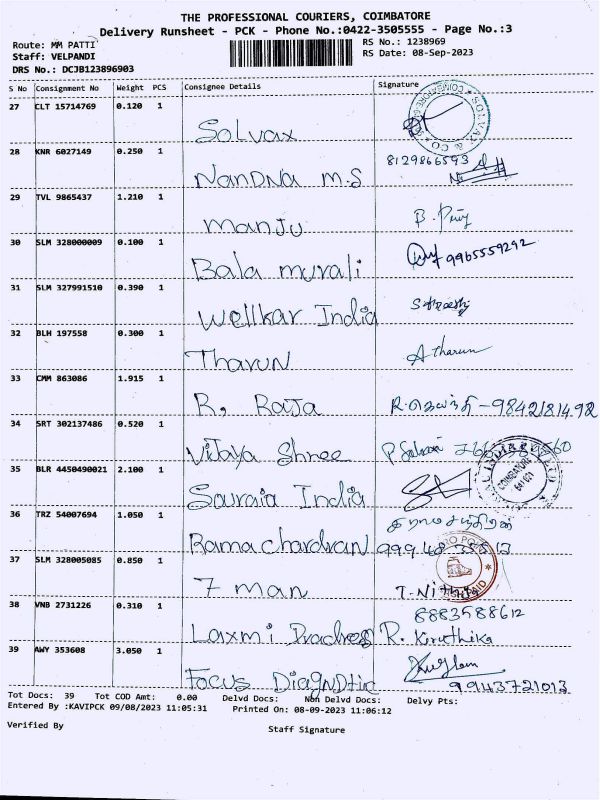 THE PROFESSIONAL COURIERS, COIMBATORE
Delivery Runsheet - PCK - Phone No.:0422-3505555 - Page No.:3
Route: MM PATTI RS No.: 1238969
Staff: VELPANDI RS Date: 08-Sep-2023
DRS No.: DCJB123896903
S No Consignment No Weight PCS Consignee Details Signature
27 CLT 15714769 0.120 1
Solvax
28 KNR 6027149 0.250 1 8129866593
NanDNa M.S
29 TVL 9865437 1.210 1
Manju B. Priy
30 SLM 328000009 0.100 1
Bala murali 9965559292
31 SLM 327991510 0.390 1
Wellkar India
32 BLH 197558 0.300 1
Tharun Atharun
33 CMM 863086 1.915 1
R. Raja R. ஜெயந்தி - 9842181492
34 SRT 302137486 0.520 1
Vijaya Shree
35 BLR 4450490021 2.100 1 COIMBATORE
Souraia India
36 TRZ 54007694 1.050 1
Rama Chardran
37 SLM 328005085 0.850 1
7 man T. Nithya
38 VNB 2731226 0.310 1 8883588612
Laxmi R. Kiruthika
39 AWY 353608 3.050 1
Focus Diagnotic 9943721013
Tot Docs: 39 Tot COD Amt: 0.00 Delvd Docs: Non Delvd Docs: Delvy Pts:
Entered By :KAVIPCK 09/08/2023 11:05:31 Printed On: 08-09-2023 11:06:12
Verified By Staff Signature